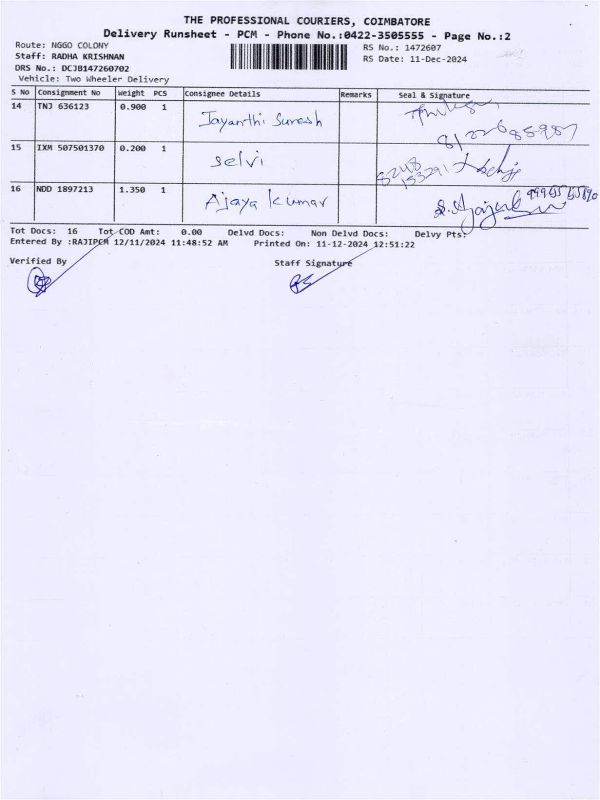 THE PROFESSIONAL COURIERS, COIMBATORE
Delivery Runsheet - PCM - Phone No.:0422-3505555 - Page No.:2
Route: NGGO COLONY
Staff: RADHA KRISHNAN
DRS No.: DCJB147260702
Vehicle: Two Wheeler Delivery
RS No.: 1472607
RS Date: 11-Dec-2024
S No Consignment No Weight PCS Consignee Details Remarks Seal & Signature
14 TNJ 636123 0.900 1 Jayanthi Suresh
15 IXM 507501370 0.200 1 Selvi
16 NDD 1897213 1.350 1 Ajaya Kumar
Tot Docs: 16 Tot COD Amt: 0.00 Delvd Docs: Non Delvd Docs: Delvy Pts:
Entered By :RAJIPCM 12/11/2024 11:48:52 AM Printed On: 11-12-2024 12:51:22
Verified By Staff Signature